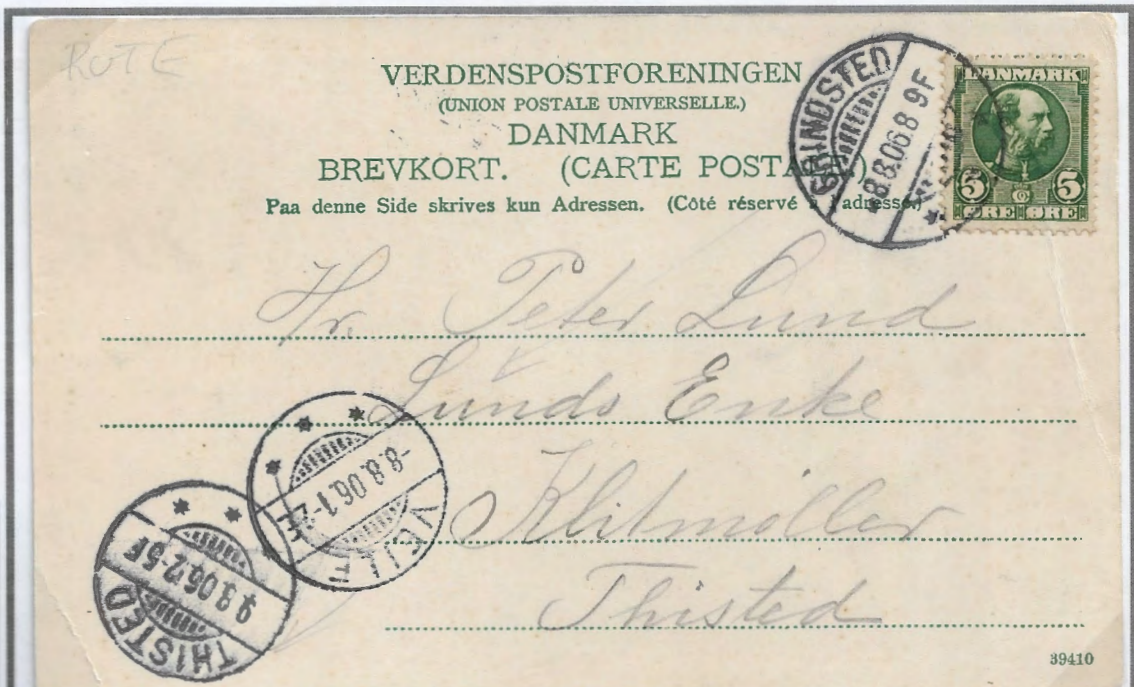 ROTE
VERDENSPOSTFORENINGEN
(UNION POSTALE UNIVERSELLE.)
DANMARK
BREVKORT. (CARTE POSTALE)
Paa denne Side skrives kun Adressen. (Côté réservé à l'adresse.)
GRINDSTED
8.8.06.8 9F
DANMARK
5 5
ØRE ØRE
Hr. Peter Lund
Lunds Enke
Klitmøller
Thisted
VEJLE
-8.8.06.1-2E
THISTED
9.8.06.2-5F
39410